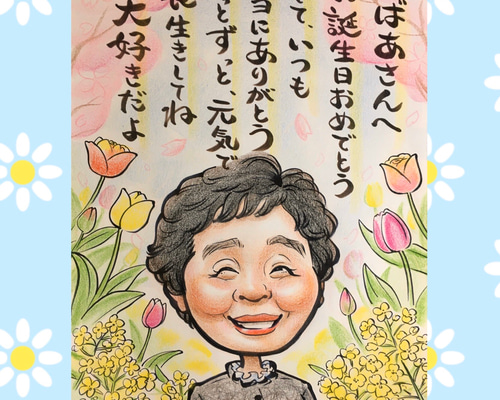 ばあさんへ
誕生日おめでとう
て、いつも
にありがとう
とずっと、元気で
生きしてね
大好きだよ